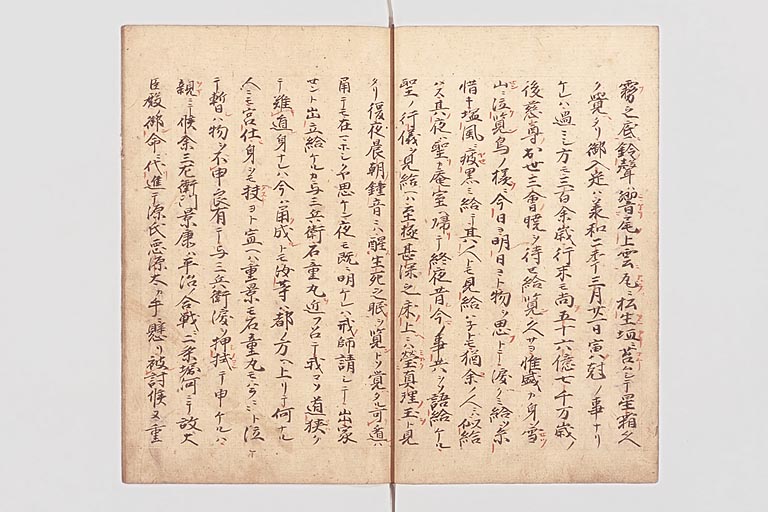 霧之底鈴聲幽響尾上雲瓦ニ松生垣ニ苔ムシテ星霜久
ク覺タリ御入定ハ承和二年三月廿一日寅ノ尅ノ事ナリ
ケレハ過ニシ方モ三百余歳行末モ尚五十六億七千万歳ノ
後慈尊出世三會暁ヲ待セ給覽久サヨ惟盛カ身ノ雪
山ニ泣覽鳥ノ様ニ今日ヨ明日ヨト物ヲ思ト テ涙クミ給ソ糸
惜キ塩風ニ痩黒ミ給テ其人トモ見給ハネトモ猶余ノ人ニハ似給
ハス其夜ハ聖カ庵室ニ帰テ終夜昔今ノ事共ヲソ語給ケル
聖ノ行儀ヲ見給ヘハ至極甚深之床上ニハ瑩真理玉ト見
タリ後夜晨朝鐘音ニハ醒生死之眠ヲ覽トソ覺タル可遁ハ
角テモ在ハホシクソ思ケン夜モ既ニ明ケレハ戒師請シテ出家
セント出立給ケルカ与三兵衛石童丸近フ召テ我コソ道狭ク
テ難遁身ナレハ今ハ角成トモ汝等ハ都ノ方ヘ上リテ何ナル
人ニモ宮仕身ヲモ扶ヨト宣ヘハ重景モ石童丸モハラハラト泣
テ暫ハ物ヲ不申良有テ与三兵衛涙ヲ押拭テ申ケルハ
親ニテ候余三左衛門景康ハ平治ノ合戦ニ二条堀河ニテ故大
臣殿御命ニ代進テ源氏悪源太カ手ニ懸リ被討候又重